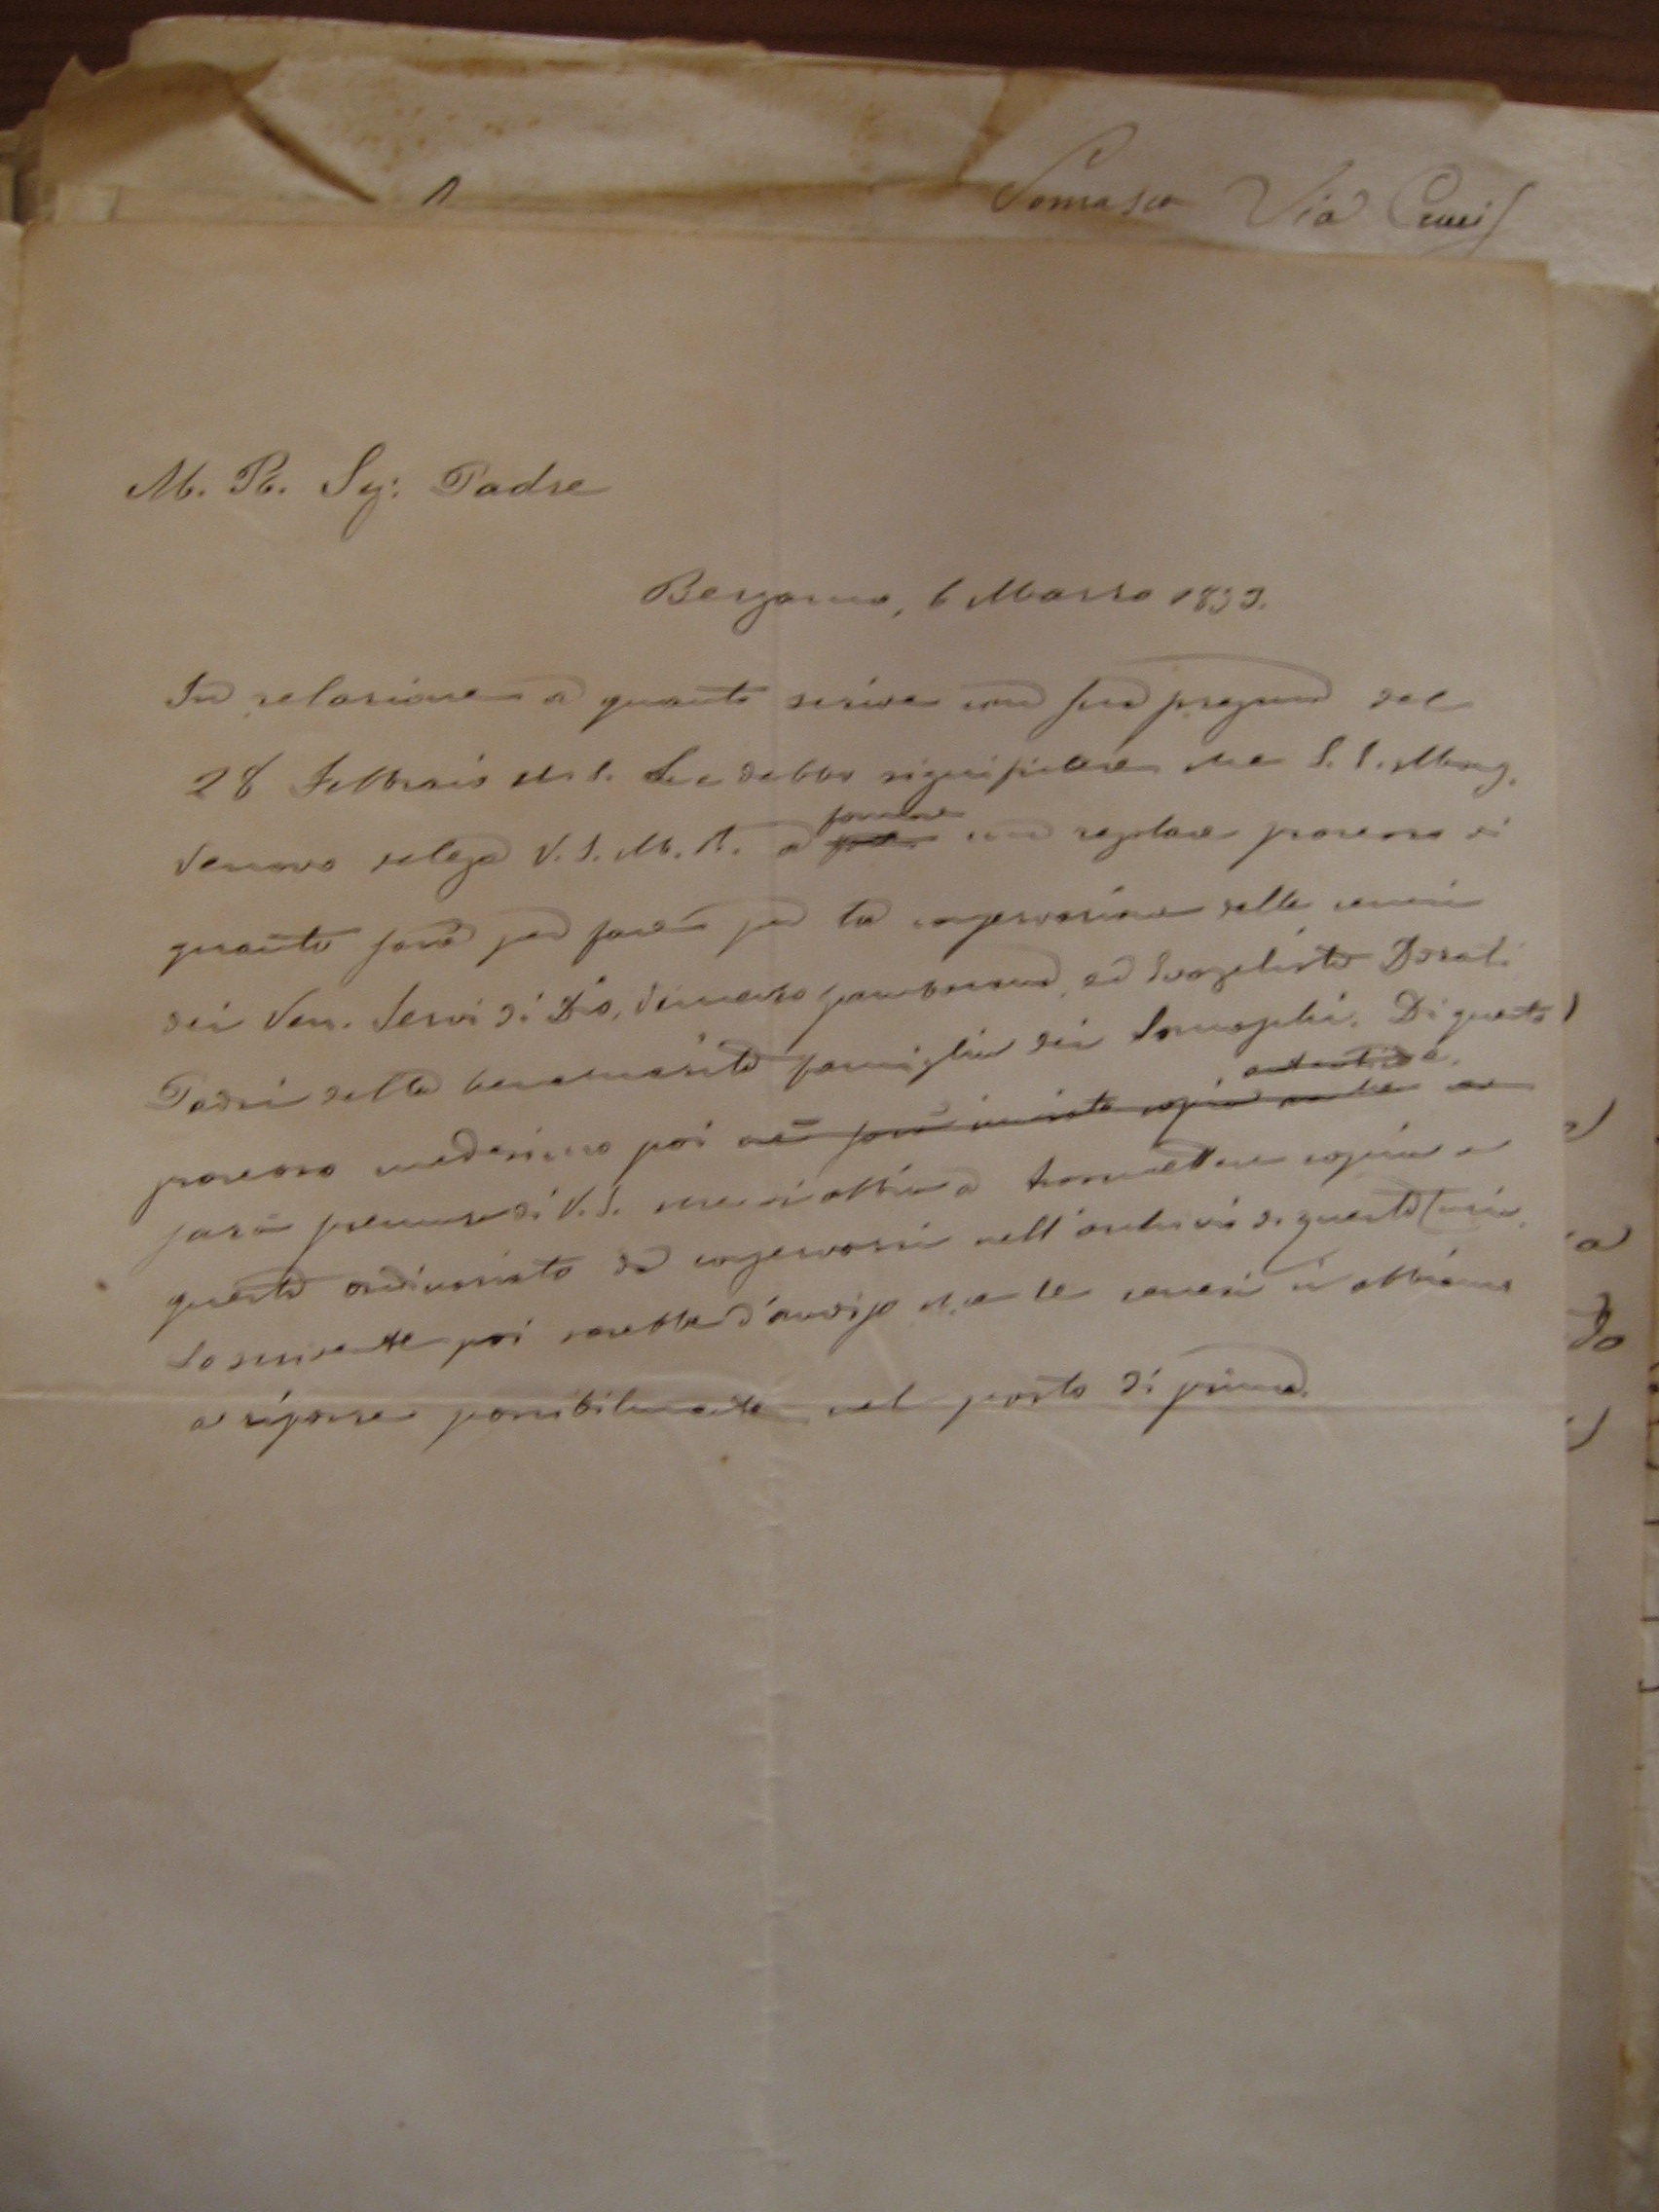 Somasca Via Crucis
M. R. Sig: Padre
Bergamo, 6 Marzo 1899.
In relazione a quanto scrive con sua pregiata del
28 Febbraio che S. S. Mons.
Vescovo delega V. S. M. R. a formare un regolare processo di
quanto sarà per fare per la conservazione delle ceneri
dei Ven. Servi di Dio, Vincenzo Gambarana ed Evangelista Dorati
Padri della benemerita famiglia dei Somaschi. Di questo
processo medesimo poi
sarà premura di V. S. trasmettere copia a
questo ordinariato da conservarsi nell'archivio di questa Curia.
Lo scrivente poi sarebbe d'avviso che le ceneri si abbiano
a riporre possibilmente nel posto di prima.